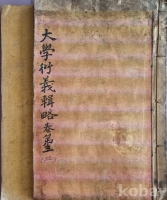 大學衍義輯略
kobay